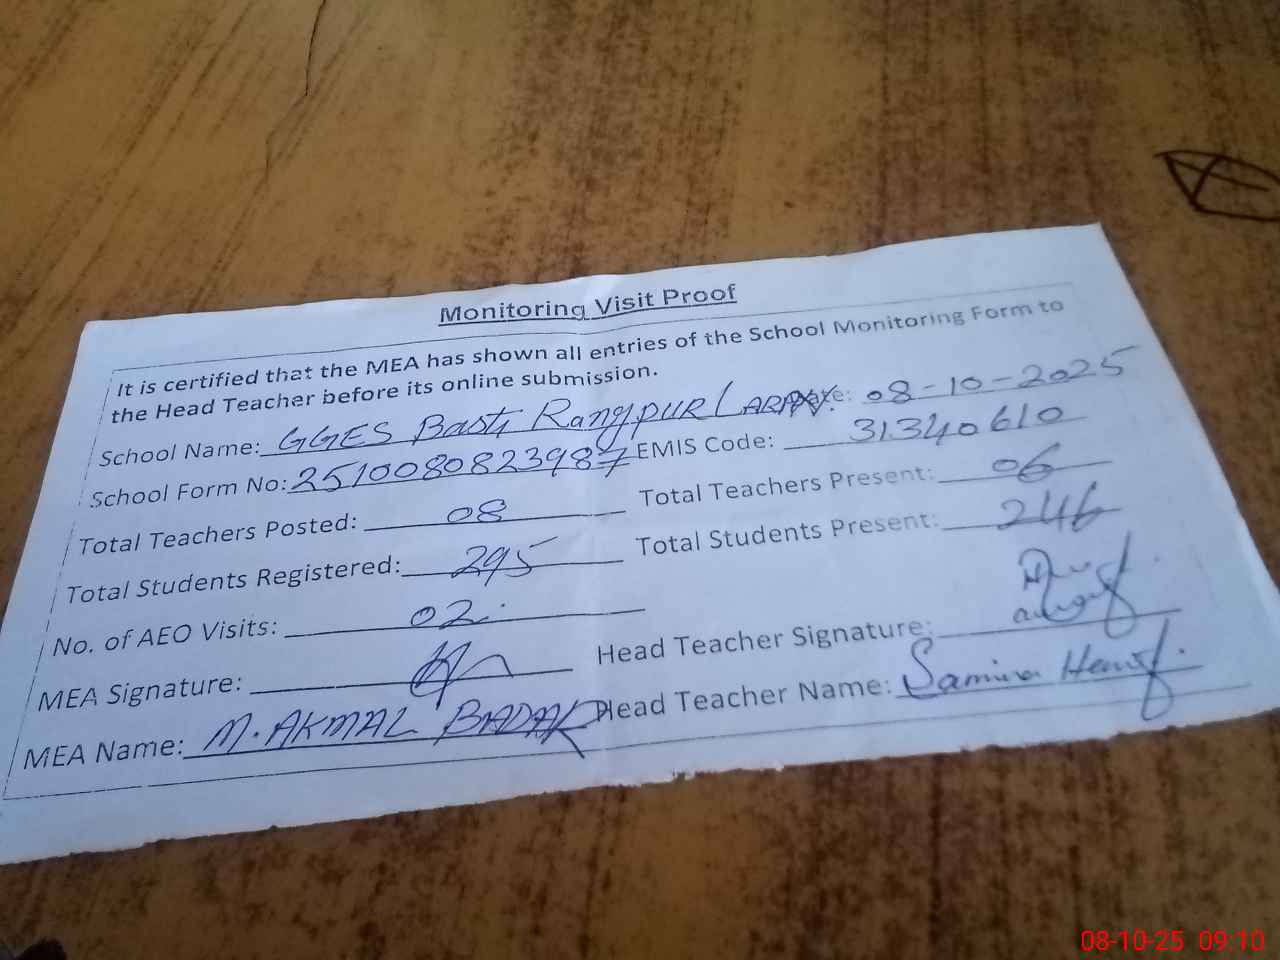 Monitoring Visit Proof
It is certified that the MEA has shown all entries of the School Monitoring Form to
the Head Teacher before its online submission.
School Name: GGES Basti Rangpur Date: 08-10-2025
School Form No: 2510080823987 EMIS Code: 31340610
Total Teachers Posted: 08 Total Teachers Present: 06
Total Students Registered: 295 Total Students Present: 246
No. of AEO Visits: 02
MEA Signature: Head Teacher Signature:
MEA Name: M. AKMAL Head Teacher Name: Samina
08-10-25 09:10